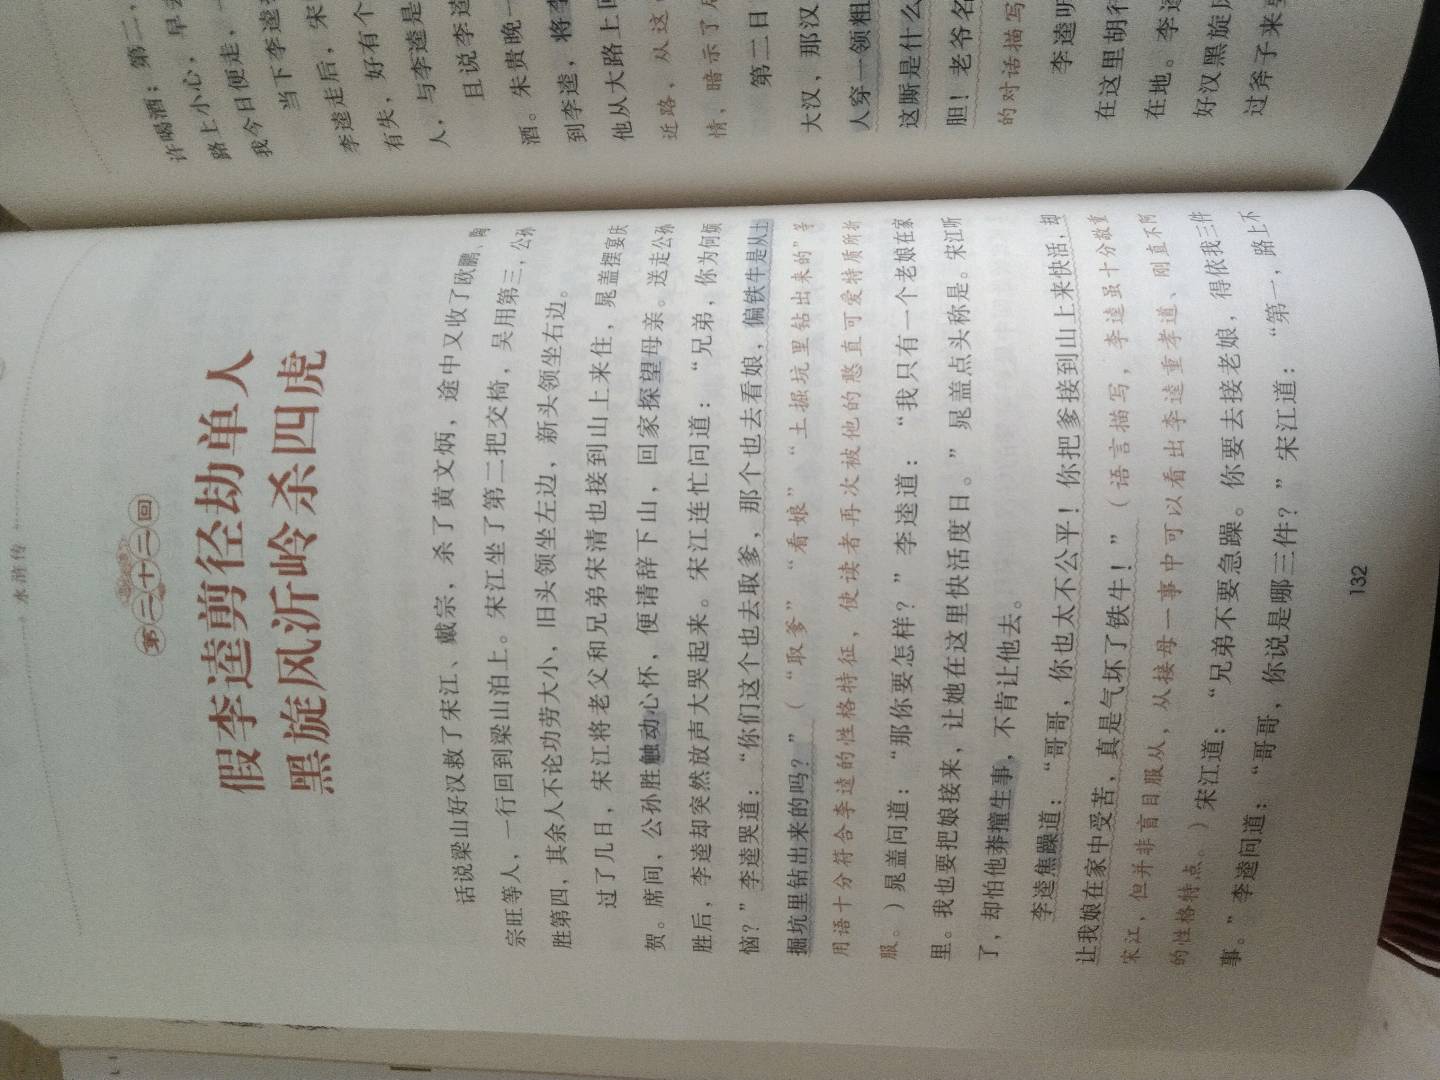 水浒传
第三十二回
假李逵剪径劫单人
黑旋风沂岭杀四虎
话说梁山好汉救了宋江、戴宗，杀了黄文炳，途中又收了欧鹏、陶
宗旺等人，一行回到梁山泊上。宋江坐了第二把交椅，吴用第三，公孙
胜第四，其余人不论功劳大小，旧头领坐左边，新头领坐右边。
过了几日，宋江将老父和兄弟宋清也接到山上来住，晁盖摆宴庆
贺。席间，公孙胜触动心怀，便请辞下山，回家探望母亲。送走公孙
胜后，李逵却突然放声大哭起来。宋江连忙问道：“兄弟，你为何烦
恼？”李逵哭道：“你们这个也去取爹，那个也去看娘，偏铁牛是从土
掘坑里钻出来的吗？”（“取爹”“看娘”“土掘坑里钻出来的”等
用语十分符合李逵的性格特征，使读者再次被他的憨直可爱特质所折
服。）晁盖问道：“那你要怎样？”李逵道：“我只有一个老娘在家
里。我也要把娘接来，让她在这里快活度日。”晁盖点头称是。宋江听
了，却怕他莽撞生事，不肯让他去。
李逵焦躁道：“哥哥，你也太不公平！你把爹接到山上来快活，却
让我娘在家中受苦，真是气坏了铁牛！”（语言描写，李逵虽十分敬重
宋江，但并非盲目服从，从接母一事中可以看出李逵重孝道、刚直不阿
的性格特点。）宋江道：“兄弟不要急躁。你要去接老娘，得依我三件
事。”李逵问道：“哥哥，你说是哪三件？”宋江道：“第一，路上不
132
许喝酒；第二，
路上小心，早去
我今日便走，
当下李逵
李逵走后，宋
有失，好有个
人，与李逵是
且说李逵
酒。朱贵晚一
到李逵，将李
他从大路上
近路，从这
情，暗示了后
第二日
大汉，那汉
人穿一领粗
这厮是什么
胆！老爷名
的对话描写
李逵听
在这里胡行
在地。李逵
好汉黑旋风
过斧子来要